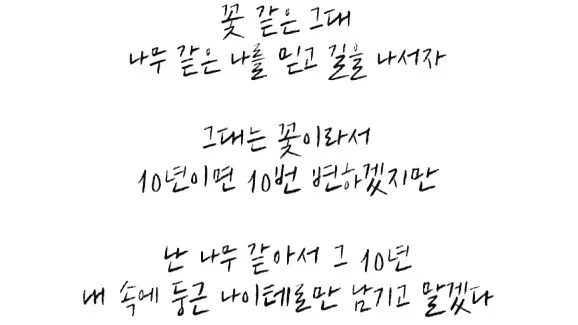 꽃 같은 그대
나무 같은 나를 믿고 길을 나서자
그대는 꽃이라서
10년이면 10번 변하겠지만
난 나무 같아서 그 10년
내 속에 둥근 나이테로만 남기고 말겠다